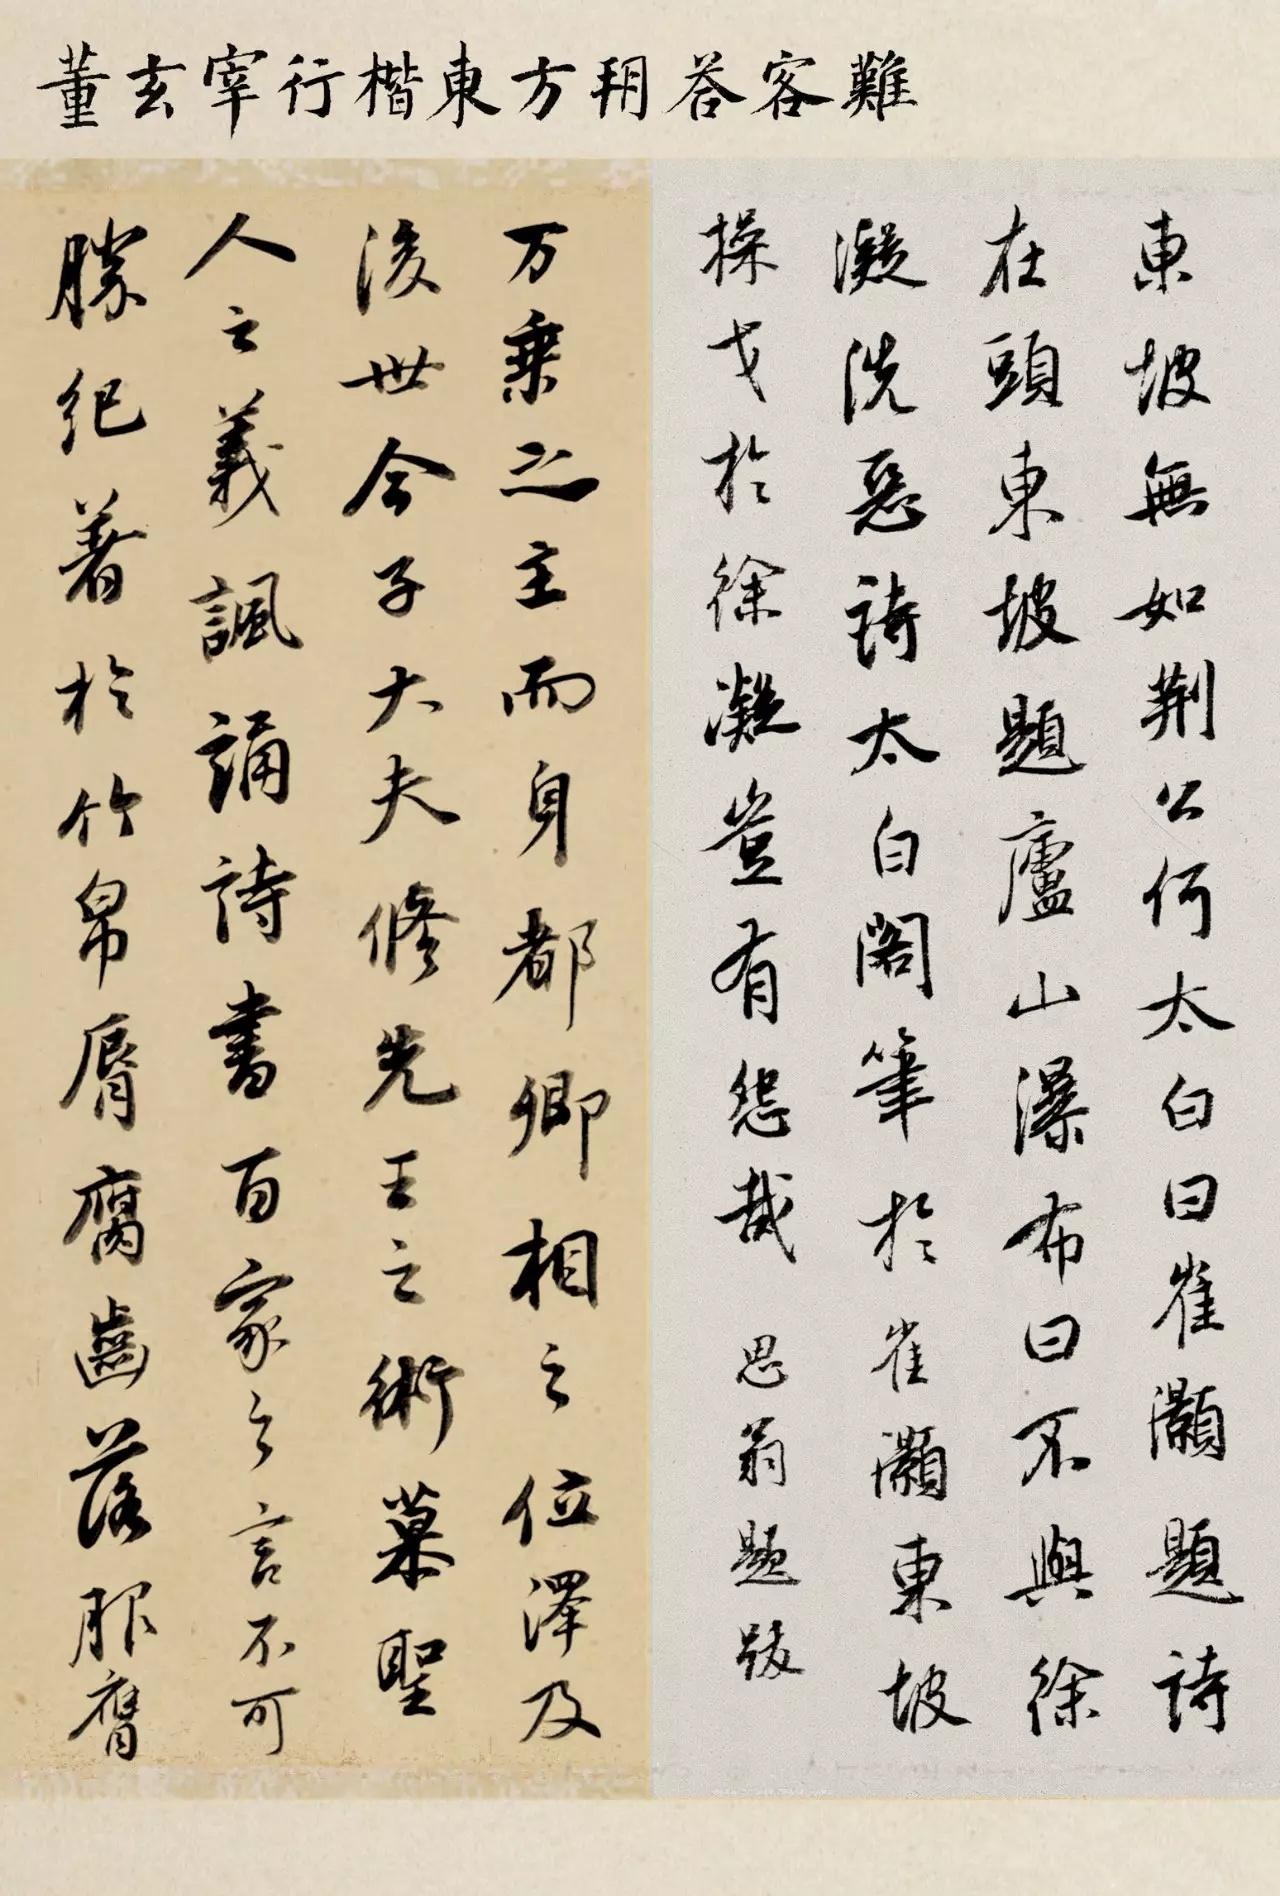 董玄宰行楷東方朔荅客難
東坡無如荆公何太白曰崔灝題詩
在頭東坡題廬山瀑布曰不與徐
凝洗惡詩太白閣筆於崔灝東坡
操戈於徐凝豈有怨哉 思翁題跋
万乗之主而身都卿相之位澤及
後世今子大夫修先王之術慕聖
人之義諷誦詩書百家之言不可
勝紀著於竹帛脣腐齒落服膺